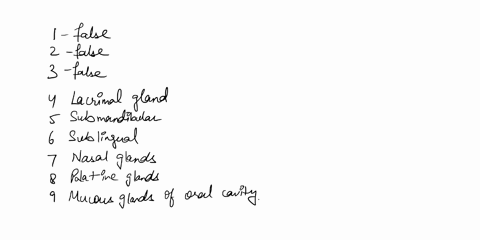 1 - false
2 - false
3 - false
4 Lacrimal gland
5 Submandibular
6 Sublingual
7 Nasal glands
8 Palatine glands
9 Mucous glands of oral cavity.